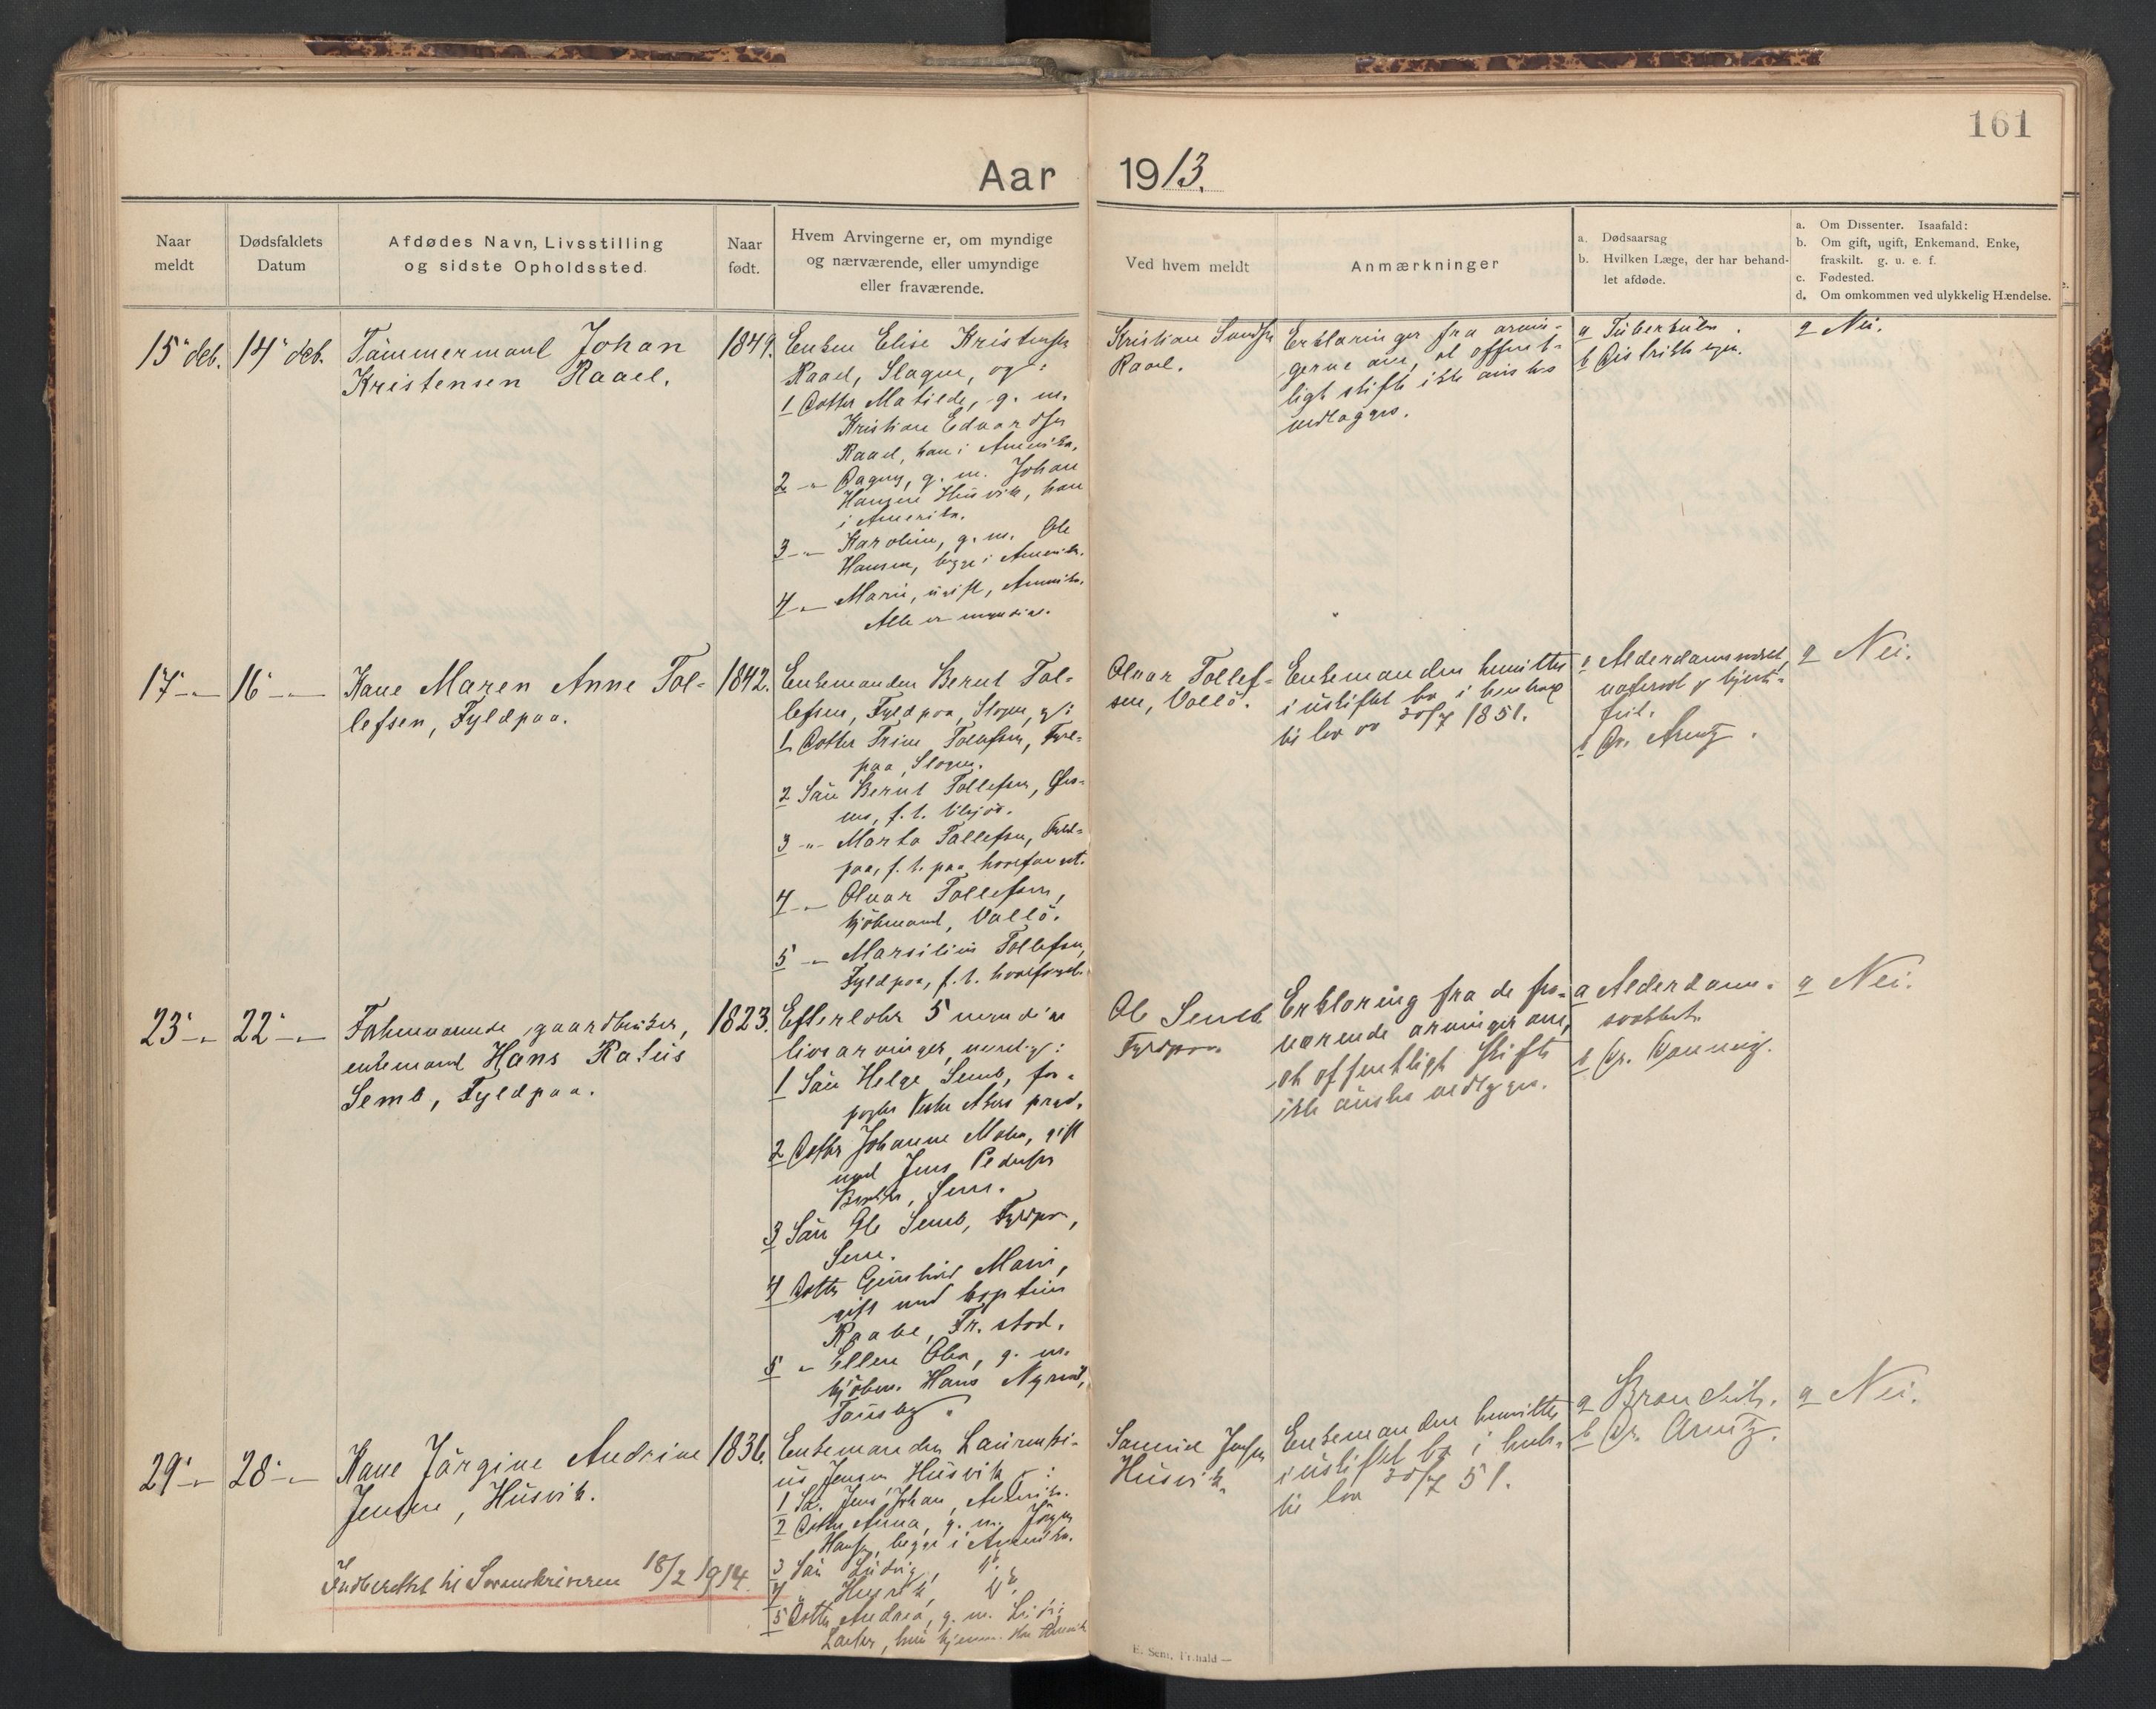 161
Aar 1913.
Naar
meldt
Dødsfaldets
Datum
Afdødes Navn, Livsstilling
og sidste Opholdssted.
Naar
født.
Hvem Arvingerne er, om myndige
og nærværende, eller umyndige
eller fraværende.
Ved hvem meldt
Anmærkninger
a. Dødsaarsag
b. Hvilken Læge, der har behand-
let afdøde.
a. Om Dissenter. Isaafald:
b. Om gift, ugift, Enkemand, Enke,
fraskilt. g. u. e. f.
c. Fødested.
d. Om omkommen ved ulykkelig Hændelse.
15 deb. 14 deb.
Tømmermand Johan
Kristensen Raael.
1849.
Enken Elise Kristensen
Raael, Slagen, og:
1 Datter Matilde, g. m.
Kristian Edvardsen
Raael, han i Amerika.
2 -"- Dagny, g. m. Johan
Hansen Husvik, han
i Amerika.
3 -"- Karoline, g. m. Ole
Hansen, begge i Amerika.
4 -"- Marie, ugift, Amerika.
Alle er myndige.
Kristian
Raael.
Erklæringer fra arvin-
gerne om, at offent-
ligt skifte ikke ønskes
vedlægges.
a Tuberkulos.
b Distriktslægen.
a Nei.
17 -"- 16 -"-
Kone Maren Anne Tol-
lefsen, Fyldpaa.
1842.
Enkemanden Bernt Tol-
lefsen, Fyldpaa, Slagen, og:
1 Datter Trine Tollefsen, Fyld-
paa, Slagen.
2 Søn Bernt Tollefsen,
f. t. tilsjøs.
3 -"- Marta Tollefsen, Fyld-
paa, f. t. paa hvalfangst.
4 -"- Olvar Tollefsen,
kjøbmand, Vallø.
5 -"- Marsilius Tollefsen,
Fyldpaa, f. t. hvalfangst.
Olvar Tollef-
sen, Vallø.
Enkemanden hensitter
i uskiftet bo i henhold
til lov av 30/7 1851.
a Alderdomssvakhet,
vatersot & hjerte-
feil.
b Dr. Arentz.
a Nei.
23 -"- 22 -"-
Forhenværende gaardbruker,
enkemand Hans Ratus
Semb, Fyldpaa.
1823.
Efterlater 5 myndige
livsarvinger, nemlig:
1 Søn Helge Semb, for-
pagter Vestre Akers præd.
2 Datter Johanne Malen, gift
med Jens Pedersen
Sem.
3 Søn Ole Semb, Fyldpaa,
Sem.
4 Datter Gunhild Marie,
gift med kaptein
Raabe, Fr.stad.
5 -"- Ellen Olea, g. m.
kjøbm. Hans
Tønsberg.
Ole Semb
Fyldpaa.
Erklæring fra de fra-
værende arvinger om,
at offentligt skifte
ikke ønskes vedlægges.
a Alderdoms-
svakhet.
b Dr.
a Nei.
29 -"- 28 -"-
Kone Jørgine Andrine
Jensen, Husvik.
1836.
Enkemanden Laurenti-
us Jensen Husvik og:
1 Sø. Jens Johan, Amerika.
2 Datter Anna, g. m. Jørgen
Hansen, begge i Amerika.
3 Søn Ludvig,
4 " Henrik,
5 Datter Andrea, g. m.
Samuel Jensen
Husvik.
Enkemanden hensitter
i uskiftet bo i henh.
til lov 30/7 51.
a Bronchit.
b Dr. Arentz.
a Nei.
Indberettet til Sorenskriveren 18/2 1914.
E. Sem, Fr.hald —